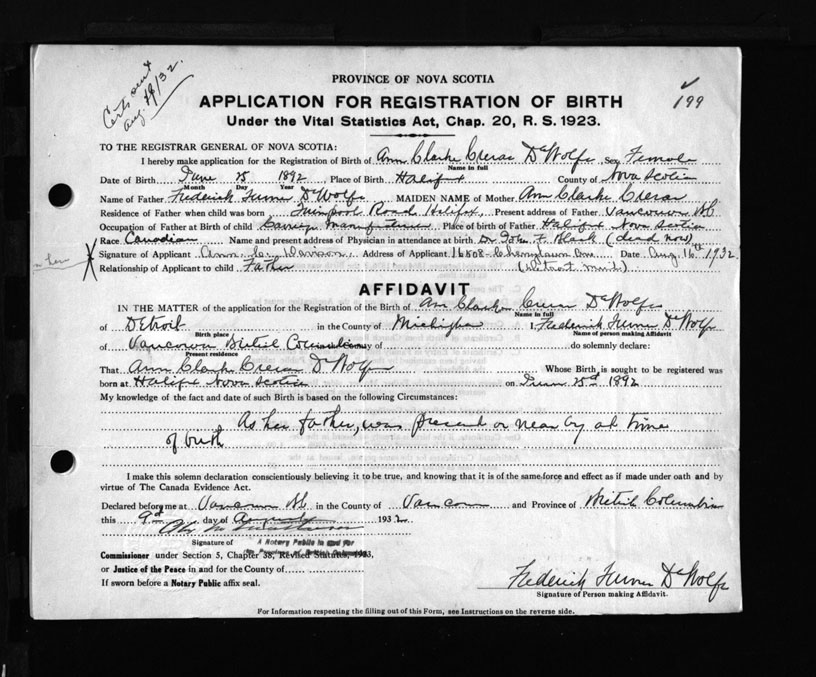 Certs sent
Aug. 19/32.
199
PROVINCE OF NOVA SCOTIA
APPLICATION FOR REGISTRATION OF BIRTH
Under the Vital Statistics Act, Chap. 20, R. S. 1923.
TO THE REGISTRAR GENERAL OF NOVA SCOTIA:
I hereby make application for the Registration of Birth of Ann Clarke Crerar DeWolfe Sex Female
Name in full
Date of Birth June 25 1892 Place of Birth Halifax County of Nova Scotia
Month Day Year
Name of Father Frederick Turner DeWolfe MAIDEN NAME of Mother Ann Clarke Crerar
Residence of Father when child was born Quinpool Road Halifax, Present address of Father Vancouver BC
Occupation of Father at Birth of child Manufacturer Place of birth of Father Halifax Nova Scotia
Race Canadian Name and present address of Physician in attendance at birth Dr John F. Black (dead now)
Signature of Applicant Ann C. Address of Applicant 16508 Ave Date Aug. 16th 1932.
Relationship of Applicant to child Father (Detroit Mich.)
AFFIDAVIT
IN THE MATTER of the application for the Registration of the Birth of Ann Clarke Crerar DeWolfe
Name in full
of Detroit in the County of Michigan I, Frederick Turner DeWolfe
Birth place Name of person making Affidavit
of Vancouver British Columbia County of do solemnly declare:
Present residence
That Ann Clarke Crerar DeWolfe Whose Birth is sought to be registered was
born at Halifax Nova Scotia on June 25th 1892
My knowledge of the fact and date of such Birth is based on the following Circumstances:
As her father, was present or near by at time
of birth
I make this solemn declaration conscientiously believing it to be true, and knowing that it is of the same force and effect as if made under oath and by
virtue of The Canada Evidence Act.
Declared before me at Vancouver BC in the County of Vancouver and Province of British Columbia
this 9th day of August 1932
Signature of A Notary Public in and for
Commissioner under Section 5, Chapter 38, Revised Statutes, 1923,
the Province of British Columbia
or Justice of the Peace in and for the County of
If sworn before a Notary Public affix seal.
Frederick Turner DeWolfe
Signature of Person making Affidavit.
For Information respecting the filling out of this Form, see Instructions on the reverse side.